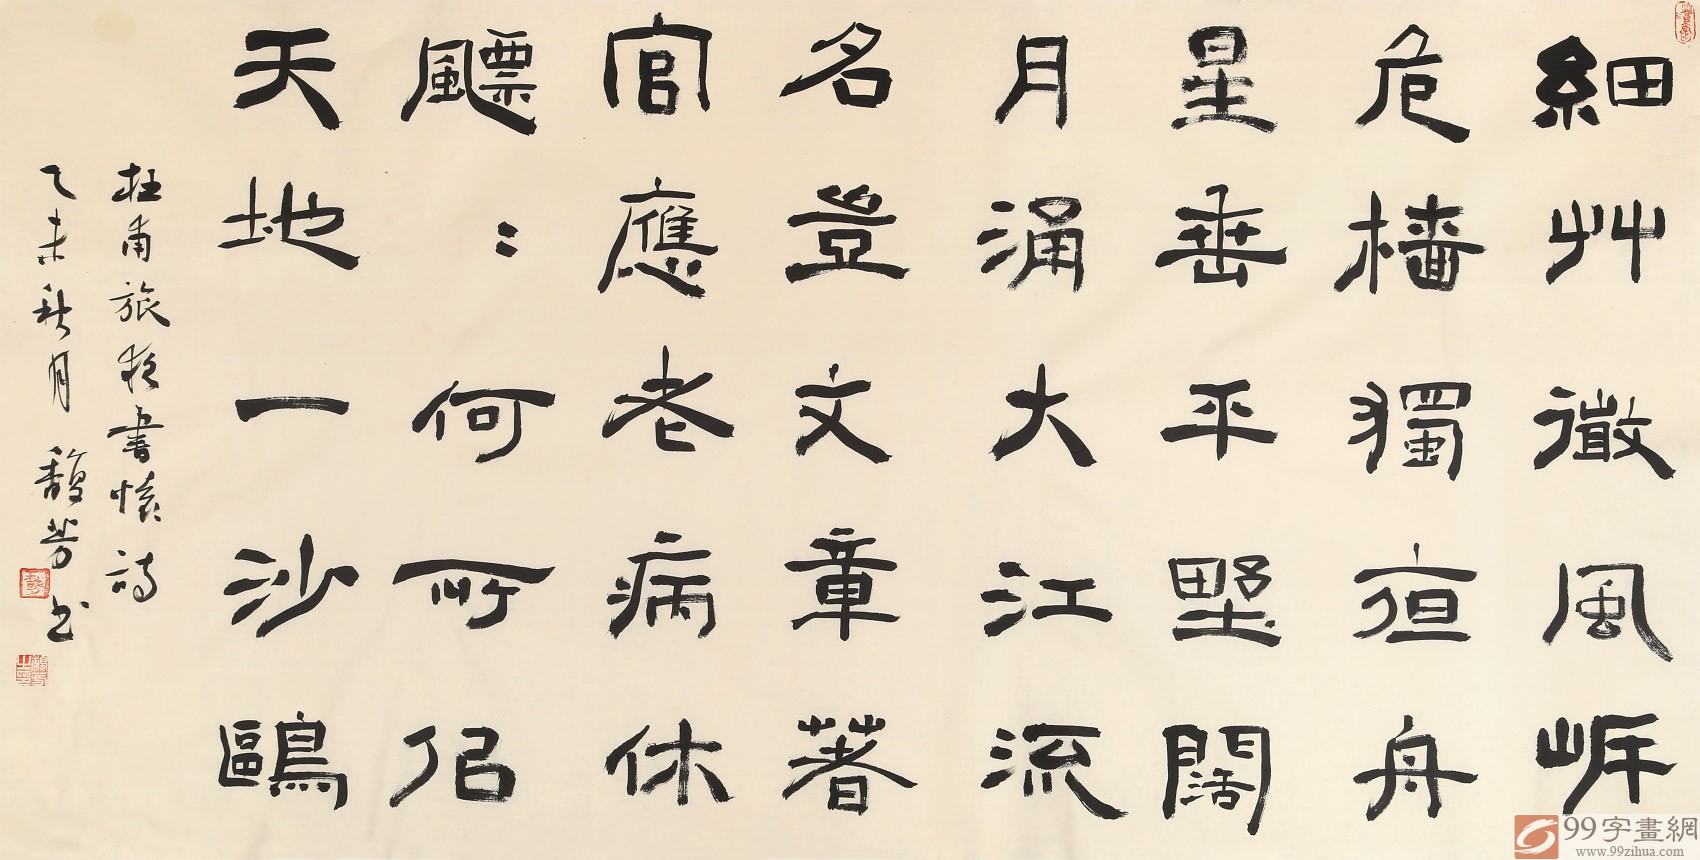 細艸微風岸
危檣獨亱舟
星垂平野闊
月涌大江流
名豈文章著
官應老病休
飃：何所佀
天地一沙鷗
杜甫旅夜書懷詩
乙未秋月馥芳书
99字畫網
www.99zihua.com